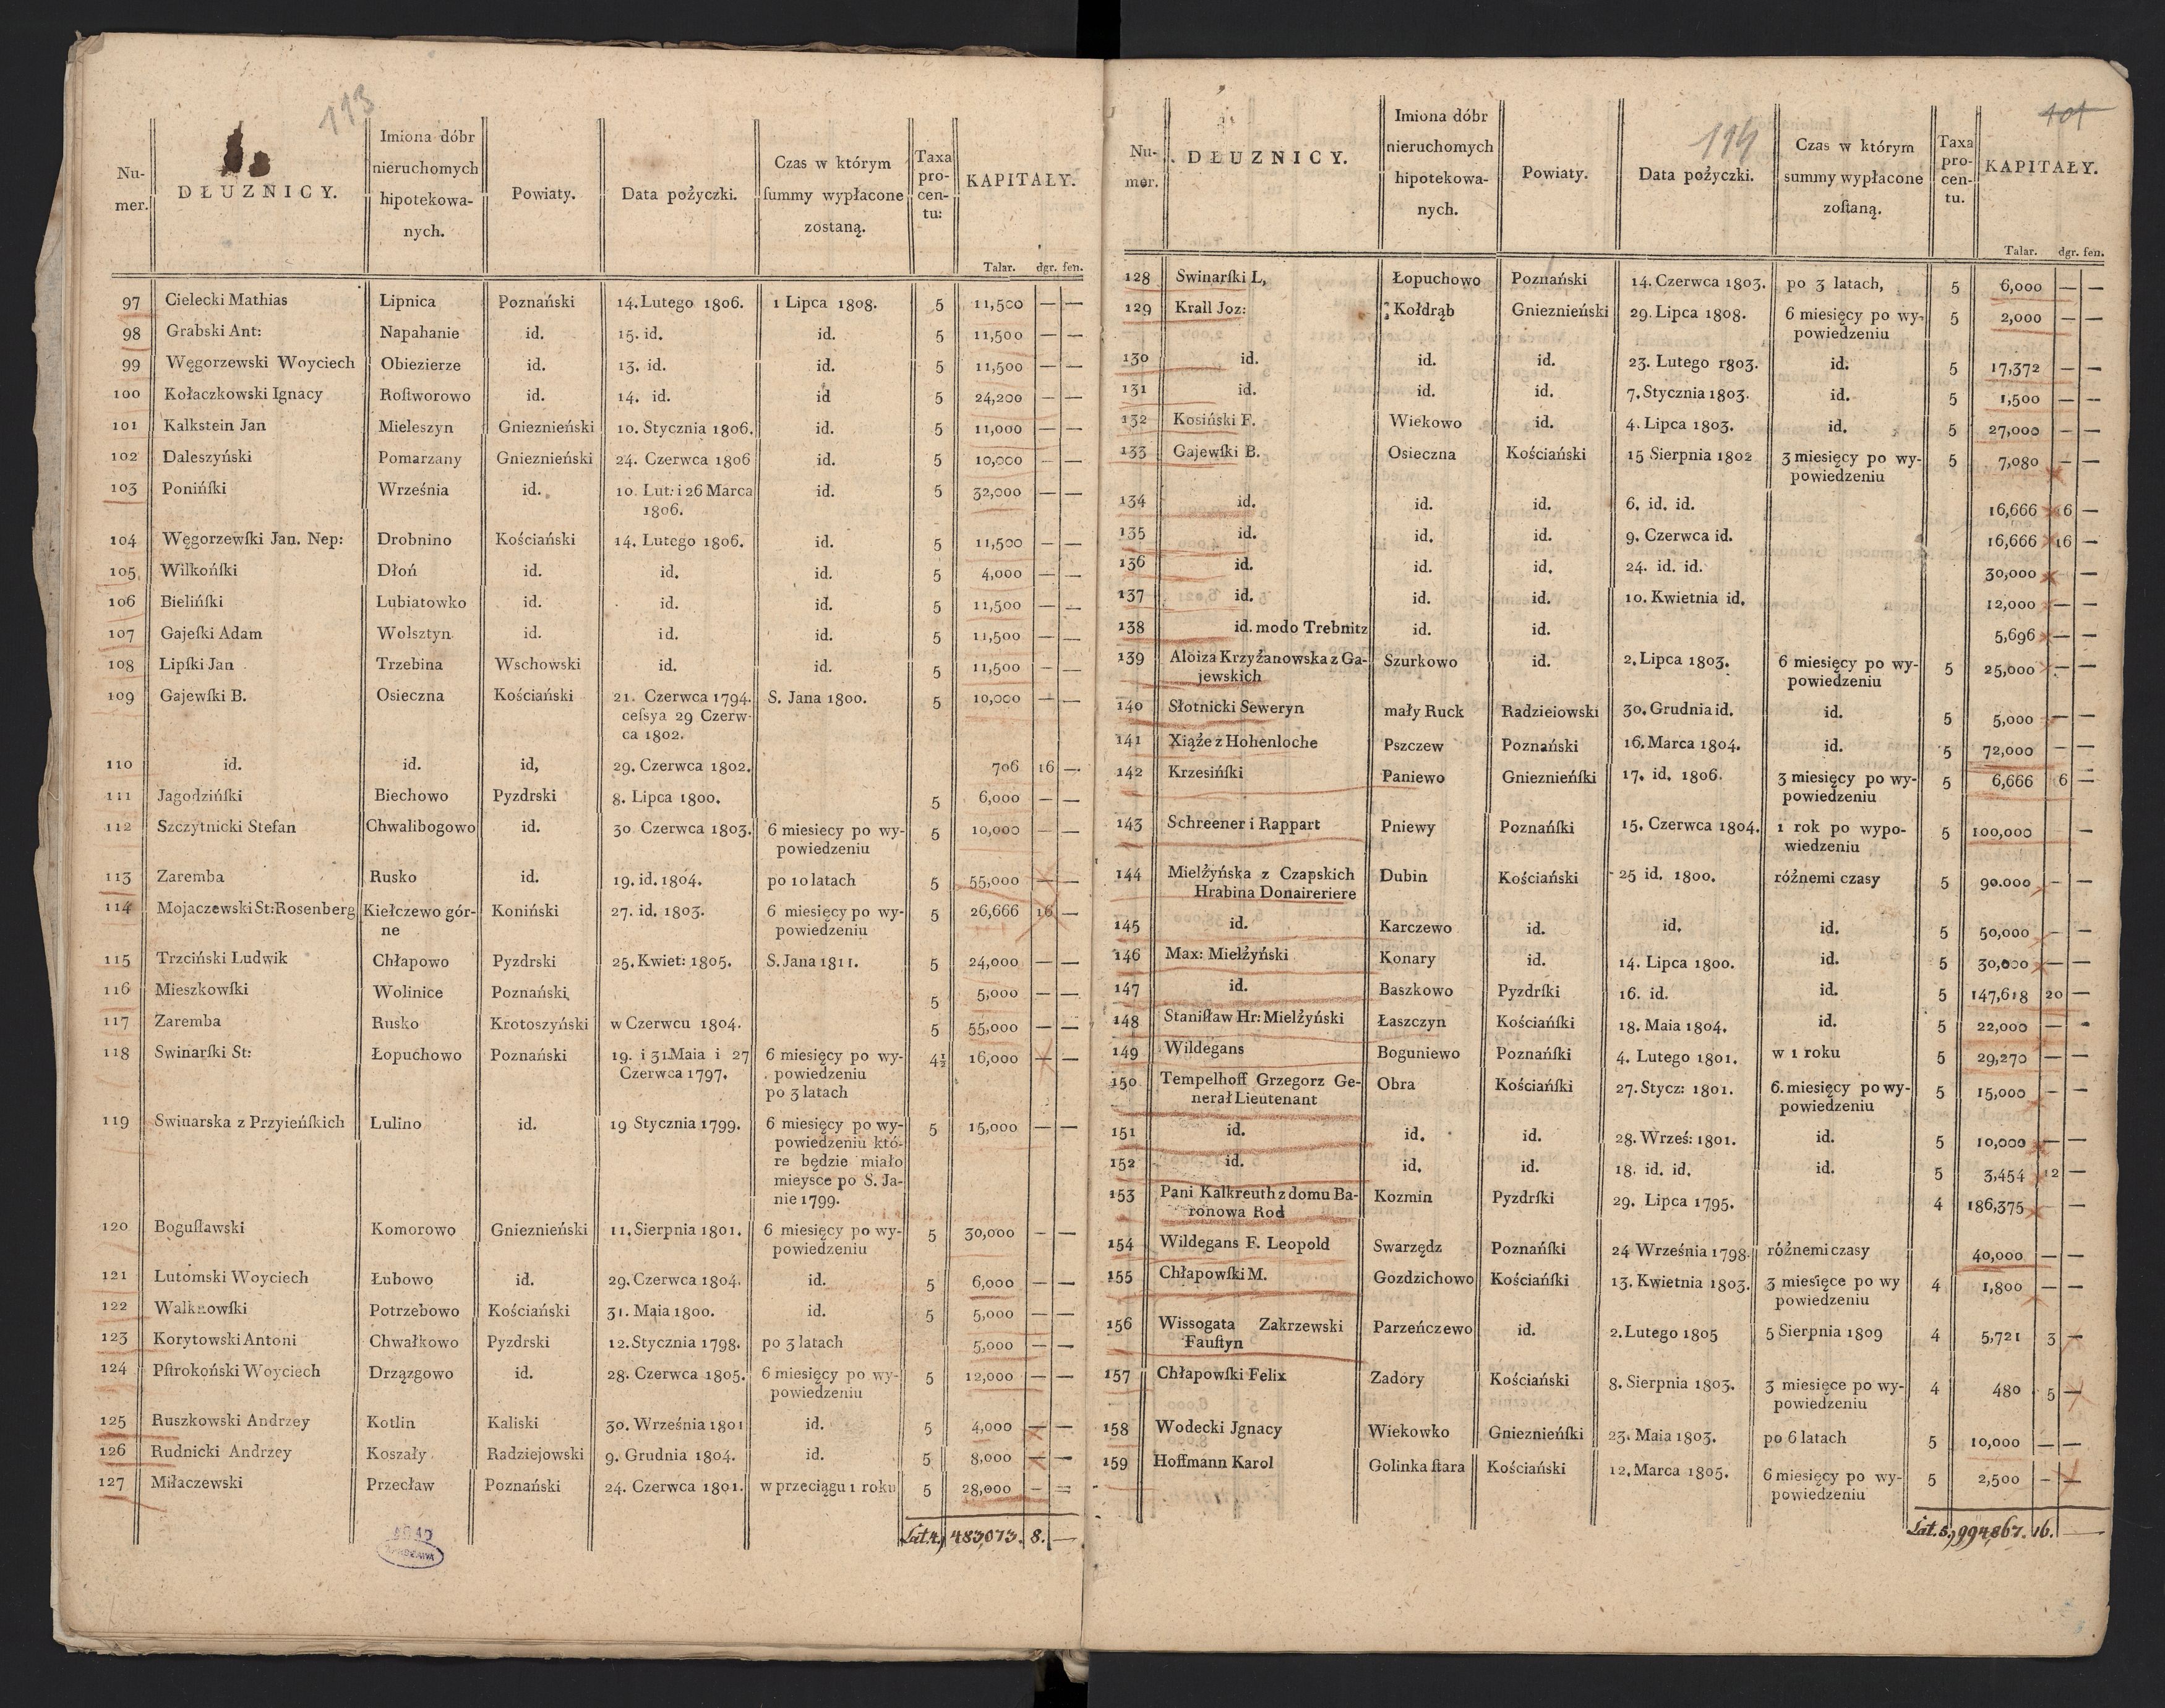 113
Nu-
mer.
DŁUZNICY.
Imiona dóbr
nieruchomych
hipotekowa-
nych.
Powiaty.
Data pożyczki.
Czas w którym
ſummy wypłacone
zostaną.
Taxa
pro-
cen-
tu:
KAPITAŁY.
Talar. dgr. fen.
97 Cielecki Mathias Lipnica Poznański 14. Lutego 1806. 1 Lipca 1808. 5 11,500 — —
98 Grabski Ant: Napahanie id. 15. id. id. 5 11,500 — —
99 Węgorzewski Woyciech Obiezierze id. 13. id. id. 5 11,500 — —
100 Kołaczkowski Ignacy Roſtworowo id. 14. id. id 5 24,200 — —
101 Kalkstein Jan Mieleszyn Gnieznieński 10. Stycznia 1806. id. 5 11,000 — —
102 Daleszyński Pomarzany Gnieznieński 24. Czerwca 1806 id. 5 10,000 — —
103 Ponińſki Września id. 10. Lut: i 26 Marca id. 5 32,000 — —
1806.
104 Węgorzewſki Jan. Nep: Drobnino Kościański 14. Lutego 1806. id. 5 11,500 — —
105. Wilkońſki Dłoń id. id. id. 5 4,000 — —
106 Bielińſki Lubiatowko id. id. id. 5 11,500 — —
107 Gajeſki Adam Wolsztyn id. id. id. 5 11,500 — —
108 Lipſki Jan Trzebina Wschowski id. id. 5 11,500 — —
109 Gajewſki B. Osieczna Kościański 21. Czerwca 1794. S. Jana 1800. 5 10,000 — —
ceſsya 29 Czerw-
ca 1802.
110 id. id. id, 29. Czerwca 1802. 706 16 —
111 Jagodzińſki Biechowo Pyzdrski 8. Lipca 1800. 5 6,000 — —
112 Szczytnicki Stefan Chwalibogowo id. 30 Czerwca 1803. 6 miesiecy po wy- 5 10,000 — —
powiedzeniu
113 Zaremba Rusko id. 19. id. 1804. po 10 latach 5 55,000 — —
114 Mojaczewski St: Rosenberg Kiełczewo gór- Koniński 27. id. 1803. 6 miesięcy po wy- 5 26,666 16 —
ne powiedzeniu
115 Trzciński Ludwik Chłapowo Pyzdrski 25. Kwiet: 1805. S. Jana 1811. 5 24,000 — —
116 Mieszkowſki Wolinice Poznański 5 5,000 — —
117 Zaremba Rusko Krotoszyński w Czerwcu 1804. 5 55,000 — —
118 Swinarſki St: Łopuchowo Poznański 19. i 31 Maia i 27 6 miesięcy po wy- 4½ 16,000 — —
Czerwca 1797. powiedzeniu
po 3 latach
119 Swinarska z Przyieńſkich Lulino id. 19 Stycznia 1799. 6 miesięcy po wy- 5 15,000 — —
powiedzeniu któ-
re będzie miało
mieysce po S. Ja-
nie 1799.
120 Boguſławski Komorowo Gnieznieński 11. Sierpnia 1801. 6 miesięcy po wy- 5 30,000 — —
powiedzeniu
121 Lutomski Woyciech Łubowo id. 29. Czerwca 1804. id. 5 6,000 — —
122 Walknowſki Potrzebowo Kościański 31. Maia 1800. id. 5 5,000 — —
123 Korytowski Antoni Chwałkowo Pyzdrski 12. Stycznia 1798. po 3 latach 5,000 — —
124 Pſtrokoński Woyciech Drzązgowo id. 28. Czerwca 1805. 6 miesięcy po wy- 5 12,000 — —
powiedzeniu
125 Ruszkowski Andrzey Kotlin Kaliski 30. Września 1801 id. 5 4,000 — —
126 Rudnicki Andrzey Koszały Radziejowski 9. Grudnia 1804. id. 5 8,000 — —
127 Miłaczewski Przecław Poznański 24. Czerwca 1801. w przeciągu 1 roku 5 28,000 — —
Lat. 4. 483,073. 8. —
101
114
Nu-
mer.
DŁUZNICY.
Imiona dóbr
nieruchomych
hipotekowa-
nych.
Powiaty.
Data pożyczki.
Czas w którym
summy wypłacone
zoſtaną.
Taxa
pro-
cen-
tu.
KAPITAŁY.
Talar. dgr. fen.
128 Swinarſki L, Łopuchowo Poznański 14. Czerwca 1803. po 3 latach, 5 6,000 — —
129 Krall Joz: Kołdrąb Gnieznieński 29. Lipca 1808. 6 miesięcy po wy- 5 2,000 — —
powiedzeniu
130 id. id. id. 23. Lutego 1803. id. 5 17,372 — —
131 id. id. id. 7. Stycznia 1803. id. 5 1,500 — —
132 Kosiński F. Wiekowo id. 4. Lipca 1803. id. 5 27,000 — —
133 Gajewſki B. Osieczna Kościański 15 Sierpnia 1802 3 miesięcy po wy- 5 7,080 — —
powiedzeniu
134 id. id. id. 6. id. id. 16,666 16 —
135 id. id. id. 9. Czerwca id. 16,666 16 —
136 id. id. id. 24. id. id. 30,000 —
137 id. id. id. 10. Kwietnia id. 12,000 — —
138 id. modo Trebnitz id. id. 5,696 — —
139 Aloiza Krzyżanowska z Ga- Szurkowo id. 2. Lipca 1803. 6 miesięcy po wy- 5 25,000 — —
jewskich powiedzeniu
140 Słotnicki Seweryn mały Ruck Radzieiowski 30. Grudnia id. id. 5 5,000 — —
141 Xiąże z Hohenloche Pszczew Poznański 16. Marca 1804. id. 5 72,000 — —
142 Krzesińſki Paniewo Gnieznieńſki 17. id. 1806. 3 miesięcy po wy- 5 6,666 6 —
powiedzeniu
143 Schreener i Rappart Pniewy Poznańſki 15. Czerwca 1804. 1 rok po wypo- 5 100,000 —
wiedzeniu
144 Mielżyńska z Czapskich Dubin Kościański 25 id. 1800. różnemi czasy 5 90.000 — —
Hrabina Donaireriere
145 id. Karczewo id. id. id. 5 50,000 — —
146 Max: Mielżyński Konary id. 14. Lipca 1800. id. 5 30,000 — —
147 id. Baszkowo Pyzdrſki 16. id. id. 5 147,618 20 —
148 Staniſław Hr: Mielżyński Łaszczyn Kościańſki 18. Maia 1804. id. 5 22,000 — —
149 Wildegans Boguniewo Poznańſki 4. Lutego 1801. w 1 roku 5 29,270 — —
150 Tempelhoff Grzegorz Ge- Obra Kościańſki 27. Stycz: 1801. 6. miesięcy po wy- 5 15,000 — —
nerał Lieutenant powiedzeniu
151 id. id. id. 28. Wrześ: 1801. id. 5 10,000 — —
152 id. id. id. 18. id. id. id. 5 3,454 12 —
153 Pani Kalkreuth z domu Ba- Kozmin Pyzdrſki 29. Lipca 1795. 4 186,375 —
ronowa Rod
154 Wildegans F. Leopold Swarzędz Poznańſki 24 Września 1798. różnemi czasy 40,000 — —
155 Chłapowſki M. Gozdzichowo Kościańſki 13. Kwietnia 1803. 3 miesięce po wy 4 1,800 — —
powiedzeniu
156 Wissogata Zakrzewski Parzeńczewo id. 2. Lutego 1805 5 Sierpnia 1809 4 5,721 3 —
Fauſtyn
157 Chłapowſki Felix Zadory Kościański 8. Sierpnia 1803. 3 miesięce po wy- 4 480 5 —
powiedzeniu
158 Wodecki Jgnacy Wiekowko Gnieznieńſki 23. Maia 1803. po 6 latach 5 10,000 — —
159 Hoffmann Karol Golinka ſtara Kościański 12. Marca 1805. 6 miesięcy po wy- 5 2,500 — —
powiedzeniu
Lat. 5. 994,867. 16. —